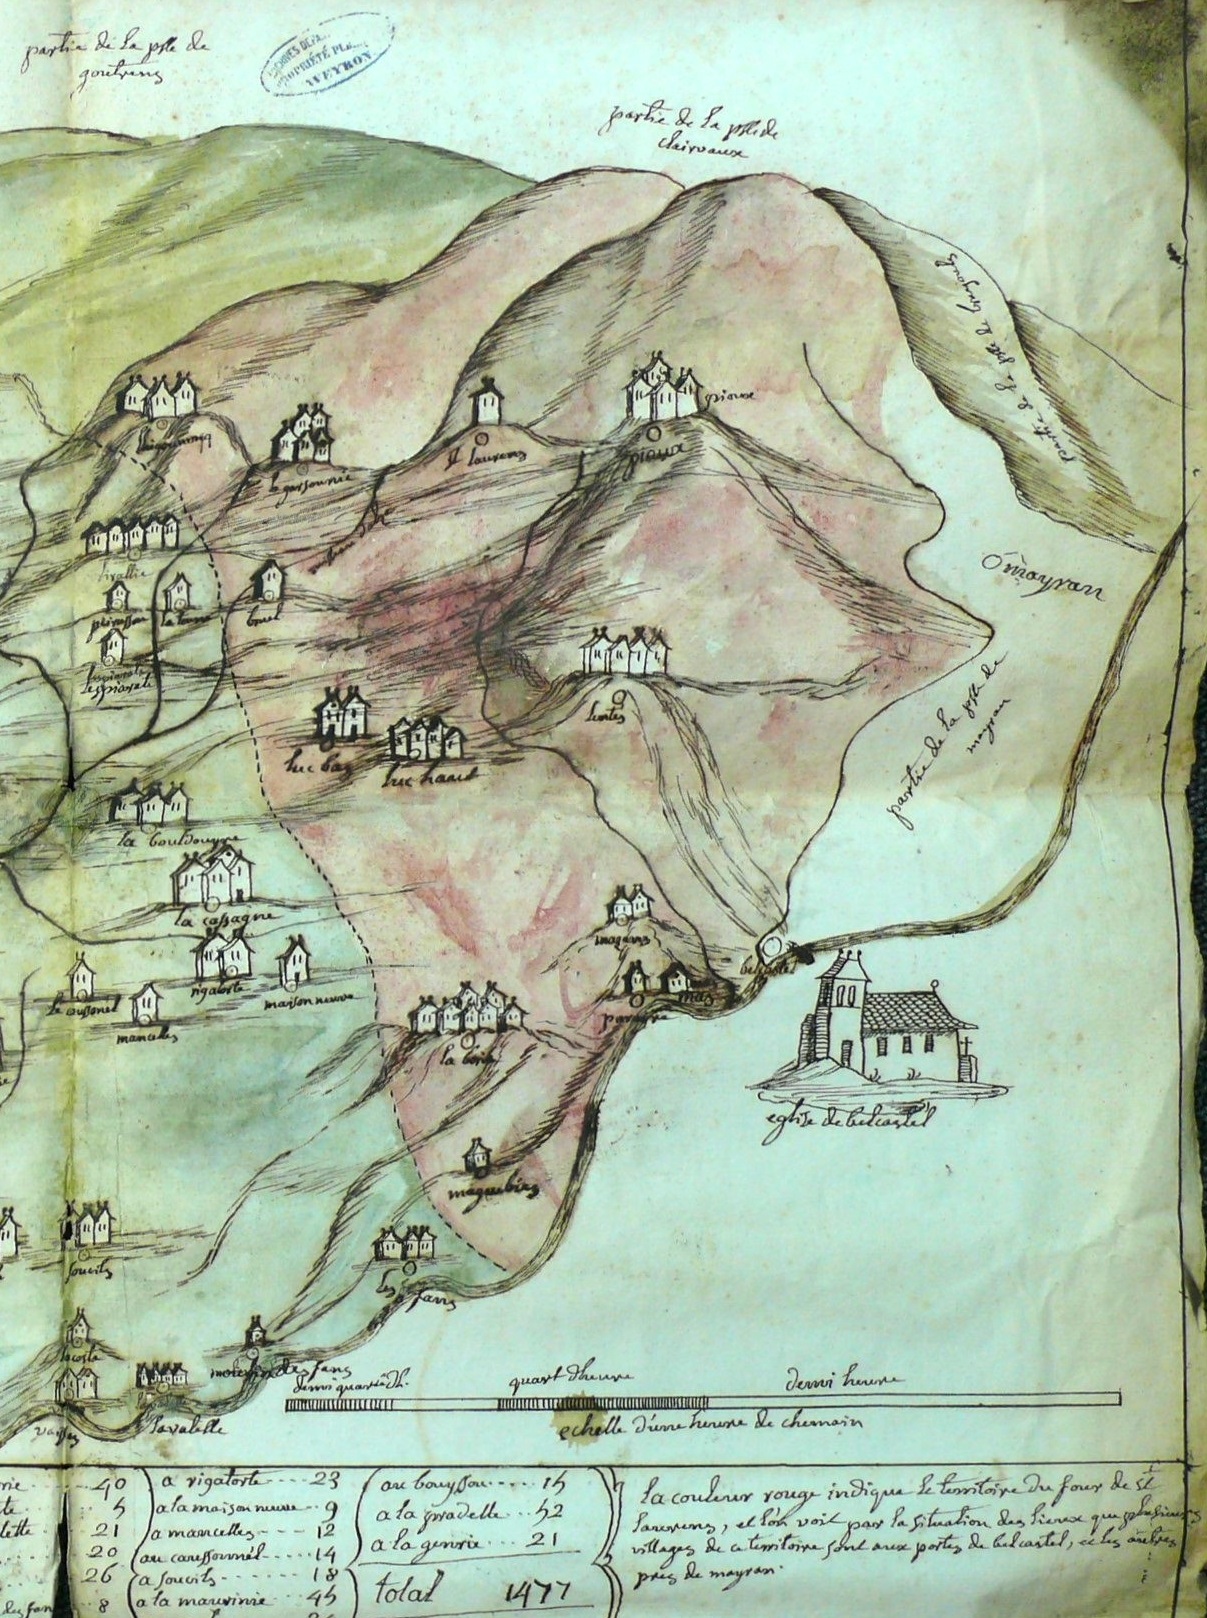 partie de la psse de
goutrens
ARCHIVES DEP
PROPRIÉTÉ PL
AVEYRON
partie de la psse de
clairvaux
partie de la psse de
pioux
pioux
st laurens
la garsounie
O mayran
partie de la psse de
mayran
tivallie
la
bruel
lespinvale
luc bas
luc haut
lentes
la bouldouyre
la cassagne
rigaloste
maison neuve
le caussonel
mancelles
mazens
belcastel
mas
la borie
eglise de belcastel
maquebies
soueils
les fans
lacoste
moulin des fans
vaysses
lavalette
demi quart d'h.
quart d'heure
demi heure
echelle d'une heure de chemain
rie 40
te 5
lette 21
20
26
des fans 8
a rigaloste 23
a la maison neuve 9
a mancelles 12
au caussonnel 14
a soueils 18
a la maurinie 45
au bouysson 15
a la pradelle 52
a la genrie 21
total 1477
la couleur rouge indique le territoire du four de st
laurens, et l'on voit par la situation des lieux que plusieurs
villages de ce territoire sont aux portes de belcastel, et les autres
pres de mayran